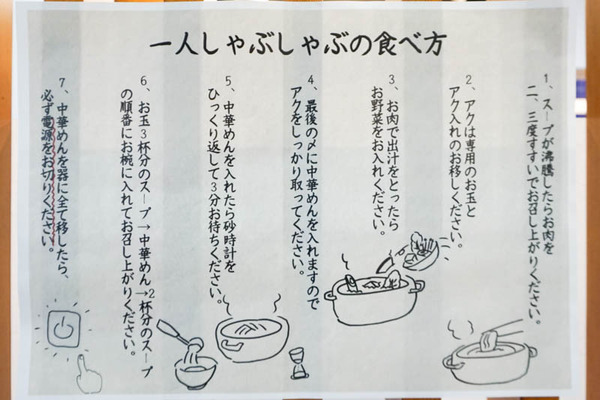 一人しゃぶしゃぶの食べ方
1、スープが沸騰したらお肉を
二、三度すすいでお召し上がりください。
2、アクは専用のお玉と
アク入れのお移しください。
3、お肉で出汁をとったら
お野菜をお入れください。
4、最後の〆に中華めんを入れますので
アクをしっかり取ってください。
5、中華めんを入れたら砂時計を
ひっくり返して3分お待ちください。
6、お玉3杯分のスープ→中華めん→2杯分のスープ
の順番にお椀に入れてお召し上がりください。
7、中華めんを器に全て移したら、
必ず電源をお切りください。